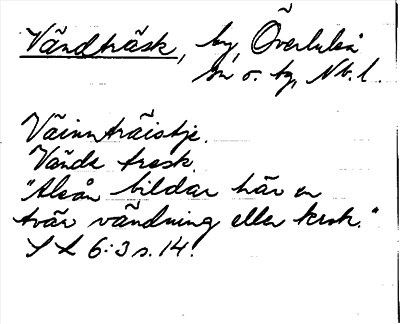 Vändträsk, by, Överluleå
sn o. tg, Nb. l.
Väinnträistje.
Vända tresk.
"Aleån bildar här en
tvär vändning eller krok."
S L 6:3 s. 14.